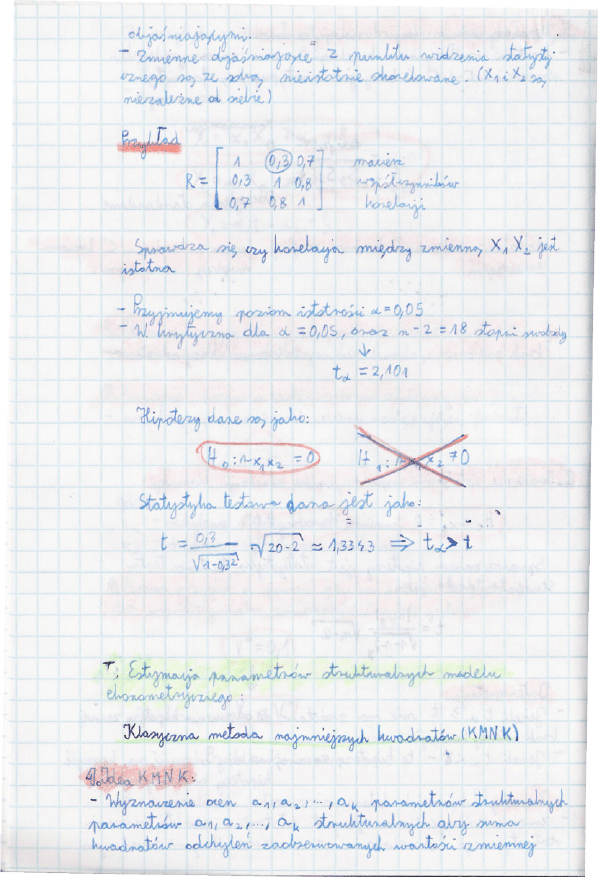 objaśniającymi.
- Zmienne objaśniające z punktu widzenia statysty
cznego są ze sobą nieistotnie skorelowane. (X1 i X2 są
niezależne od siebie)
Przykład
R = [ 1 0,3 0,7 macierz
0,3 1 0,8 współczynników
0,7 0,8 1 ] korelacji
Sprawdza się, czy korelacja między zmienną X1 X2 jest
istotna
- Przyjmujemy poziom istotności α = 0,05
- W. krytyczna dla α = 0,05, oraz n-2 = 18 stopni swobody
↓
tα = 2,101
Hipotezy dane są jako:
H0: r x1x2 = 0 H1: r x1x2 ≠ 0
Statystyka testowa dana jest jako:
t = 0,3/√(1-0,3²) · √(20-2) ≈ 1,3343 ⇒ tα > t
T. Estymacja parametrów strukturalnych modelu
ekonometrycznego:
Klasyczna metoda najmniejszych kwadratów (KMNK)
Idea KMNK:
- Wyznaczenie ocen a1, a2, ..., ak parametrów strukturalnych
parametrów a1, a2, ..., ak strukturalnych aby suma
kwadratów odchyleń zaobserwowanych wartości zmiennej